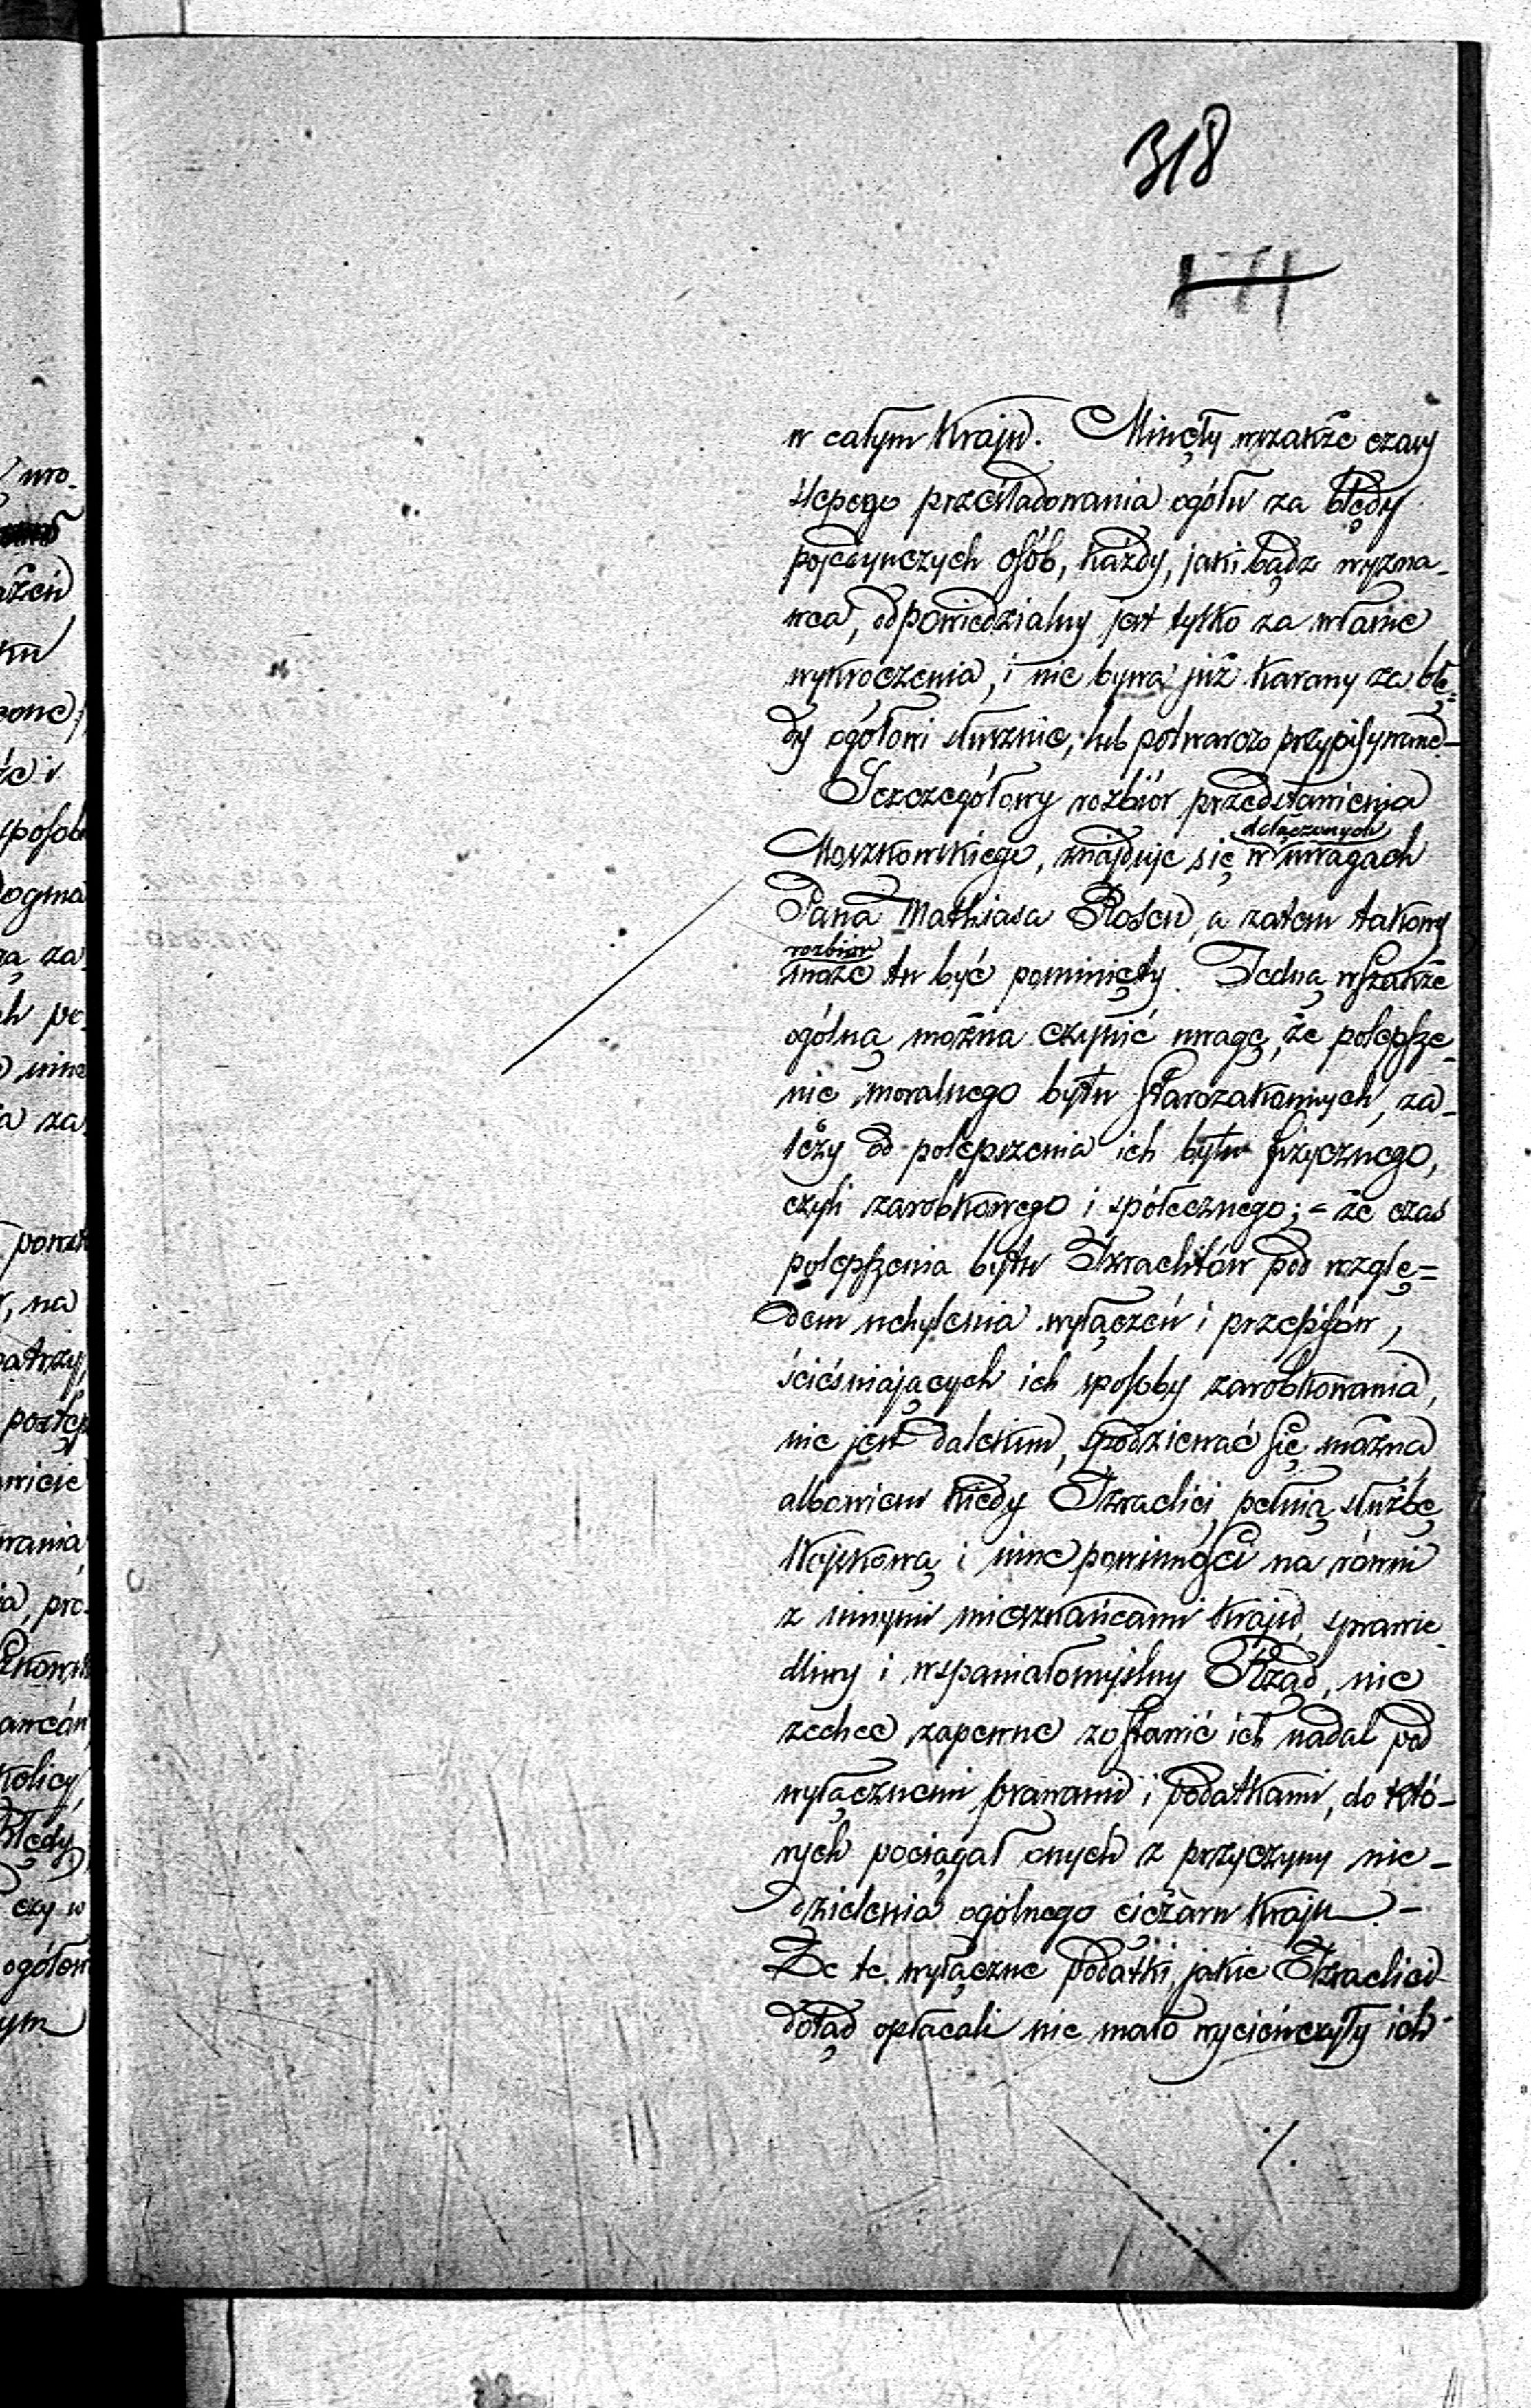 318
171
w całym kraju. Minęły wszakże czasy
ślepego prześladowania ogółu za błędy
pojedynczych osób, każdy, jaki bądz wyzna-
wca, odpowiedzialny jest tylko za własne
wykroczenia, i nie bywa już karany za błę-
dy ogółowi słusznie, lub potwarczo przypisywane-
Szczegółowy rozbiór przedstawienia
dołączonych
Moszkowskiego, znajduje się w uwagach
Pana Mathiasa Rosen, a zatem takowy
rozbiór
może tu być pominięty. Jedną wszakże
ogólną można czynić uwagę, że polepsze-
nie moralnego bytu starozakonnych, za-
leży od polepszenia ich bytu fizycznego,
czyli zarobkowego i społecznego; - że czas
polepszenia bytu Izraelitów pod wzglę=
dem uchylenia wyłączeń i przepisów,
ścieśniających ich sposoby zarobkowania,
nie jest dalekim, spodziewać się można
albowiem kiedy Izraelici pełnią służbę
Wojskową i inne powinności na równi
z innymi mieszkańcami kraju, sprawie-
dliwy i wspaniałomyślny Rząd, nie
zechce zapewne zostawić ich nadal pod
wyłącznemi prawami i podatkami, do któ-
rych pociągał onych z przyczyny nie-
dzielenia ogólnego ciężaru kraju. -
Że te wyłączne podatki, jakie Izraelici
dotąd opłacali nie mało wycieńczyły ich
/.